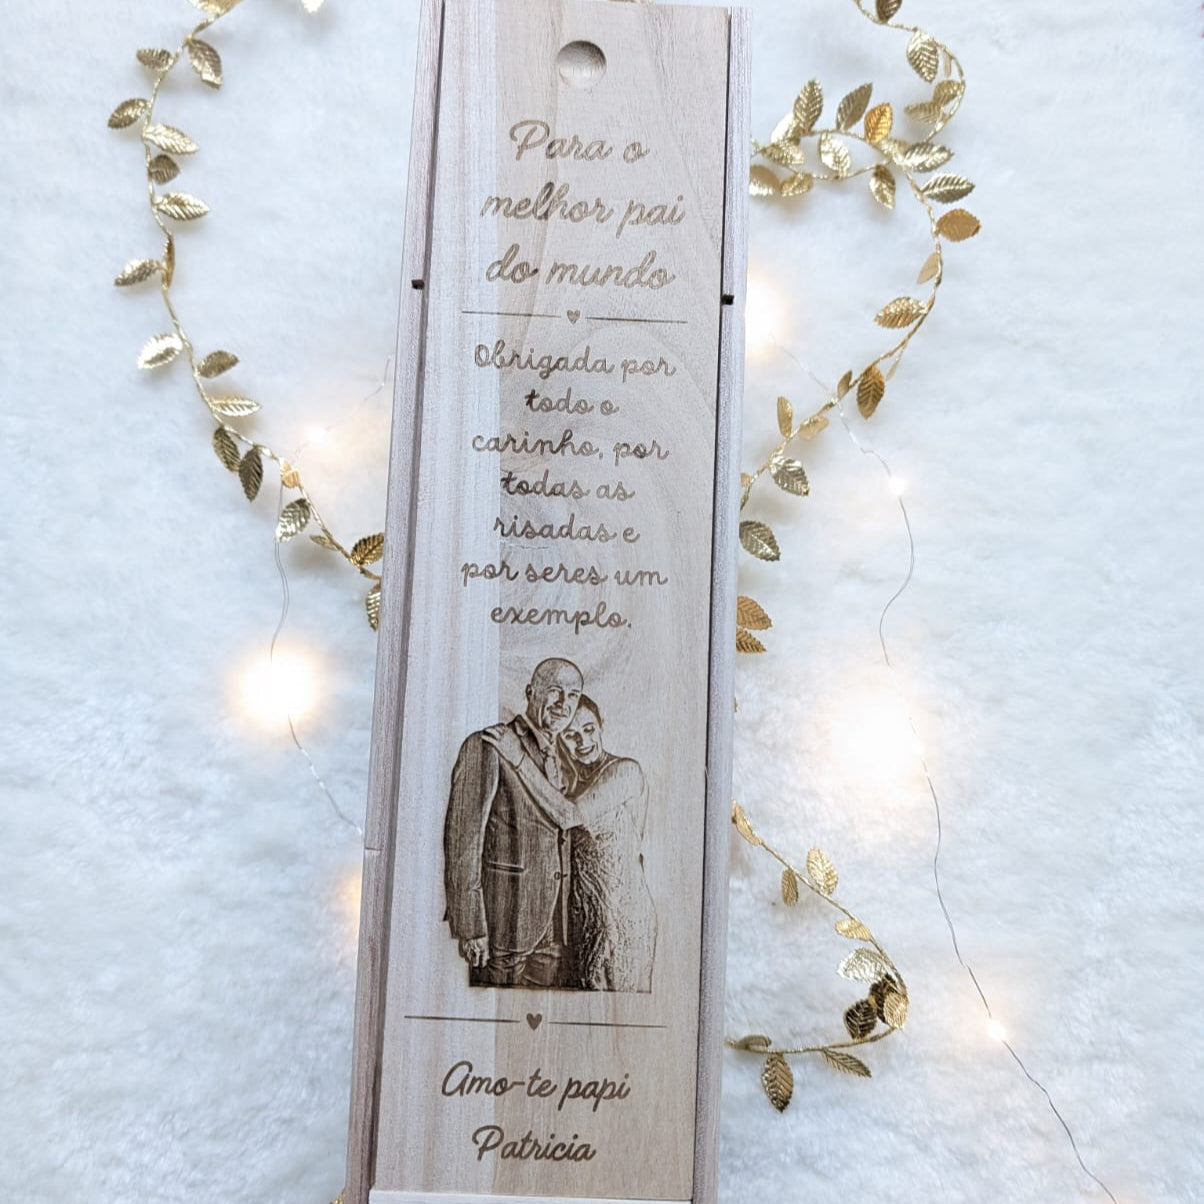 Para o
melhor pai
do mundo
Obrigada por
todo o
carinho, por
todas as
risadas e
por seres um
exemplo.
Amo-te papi
Patricia